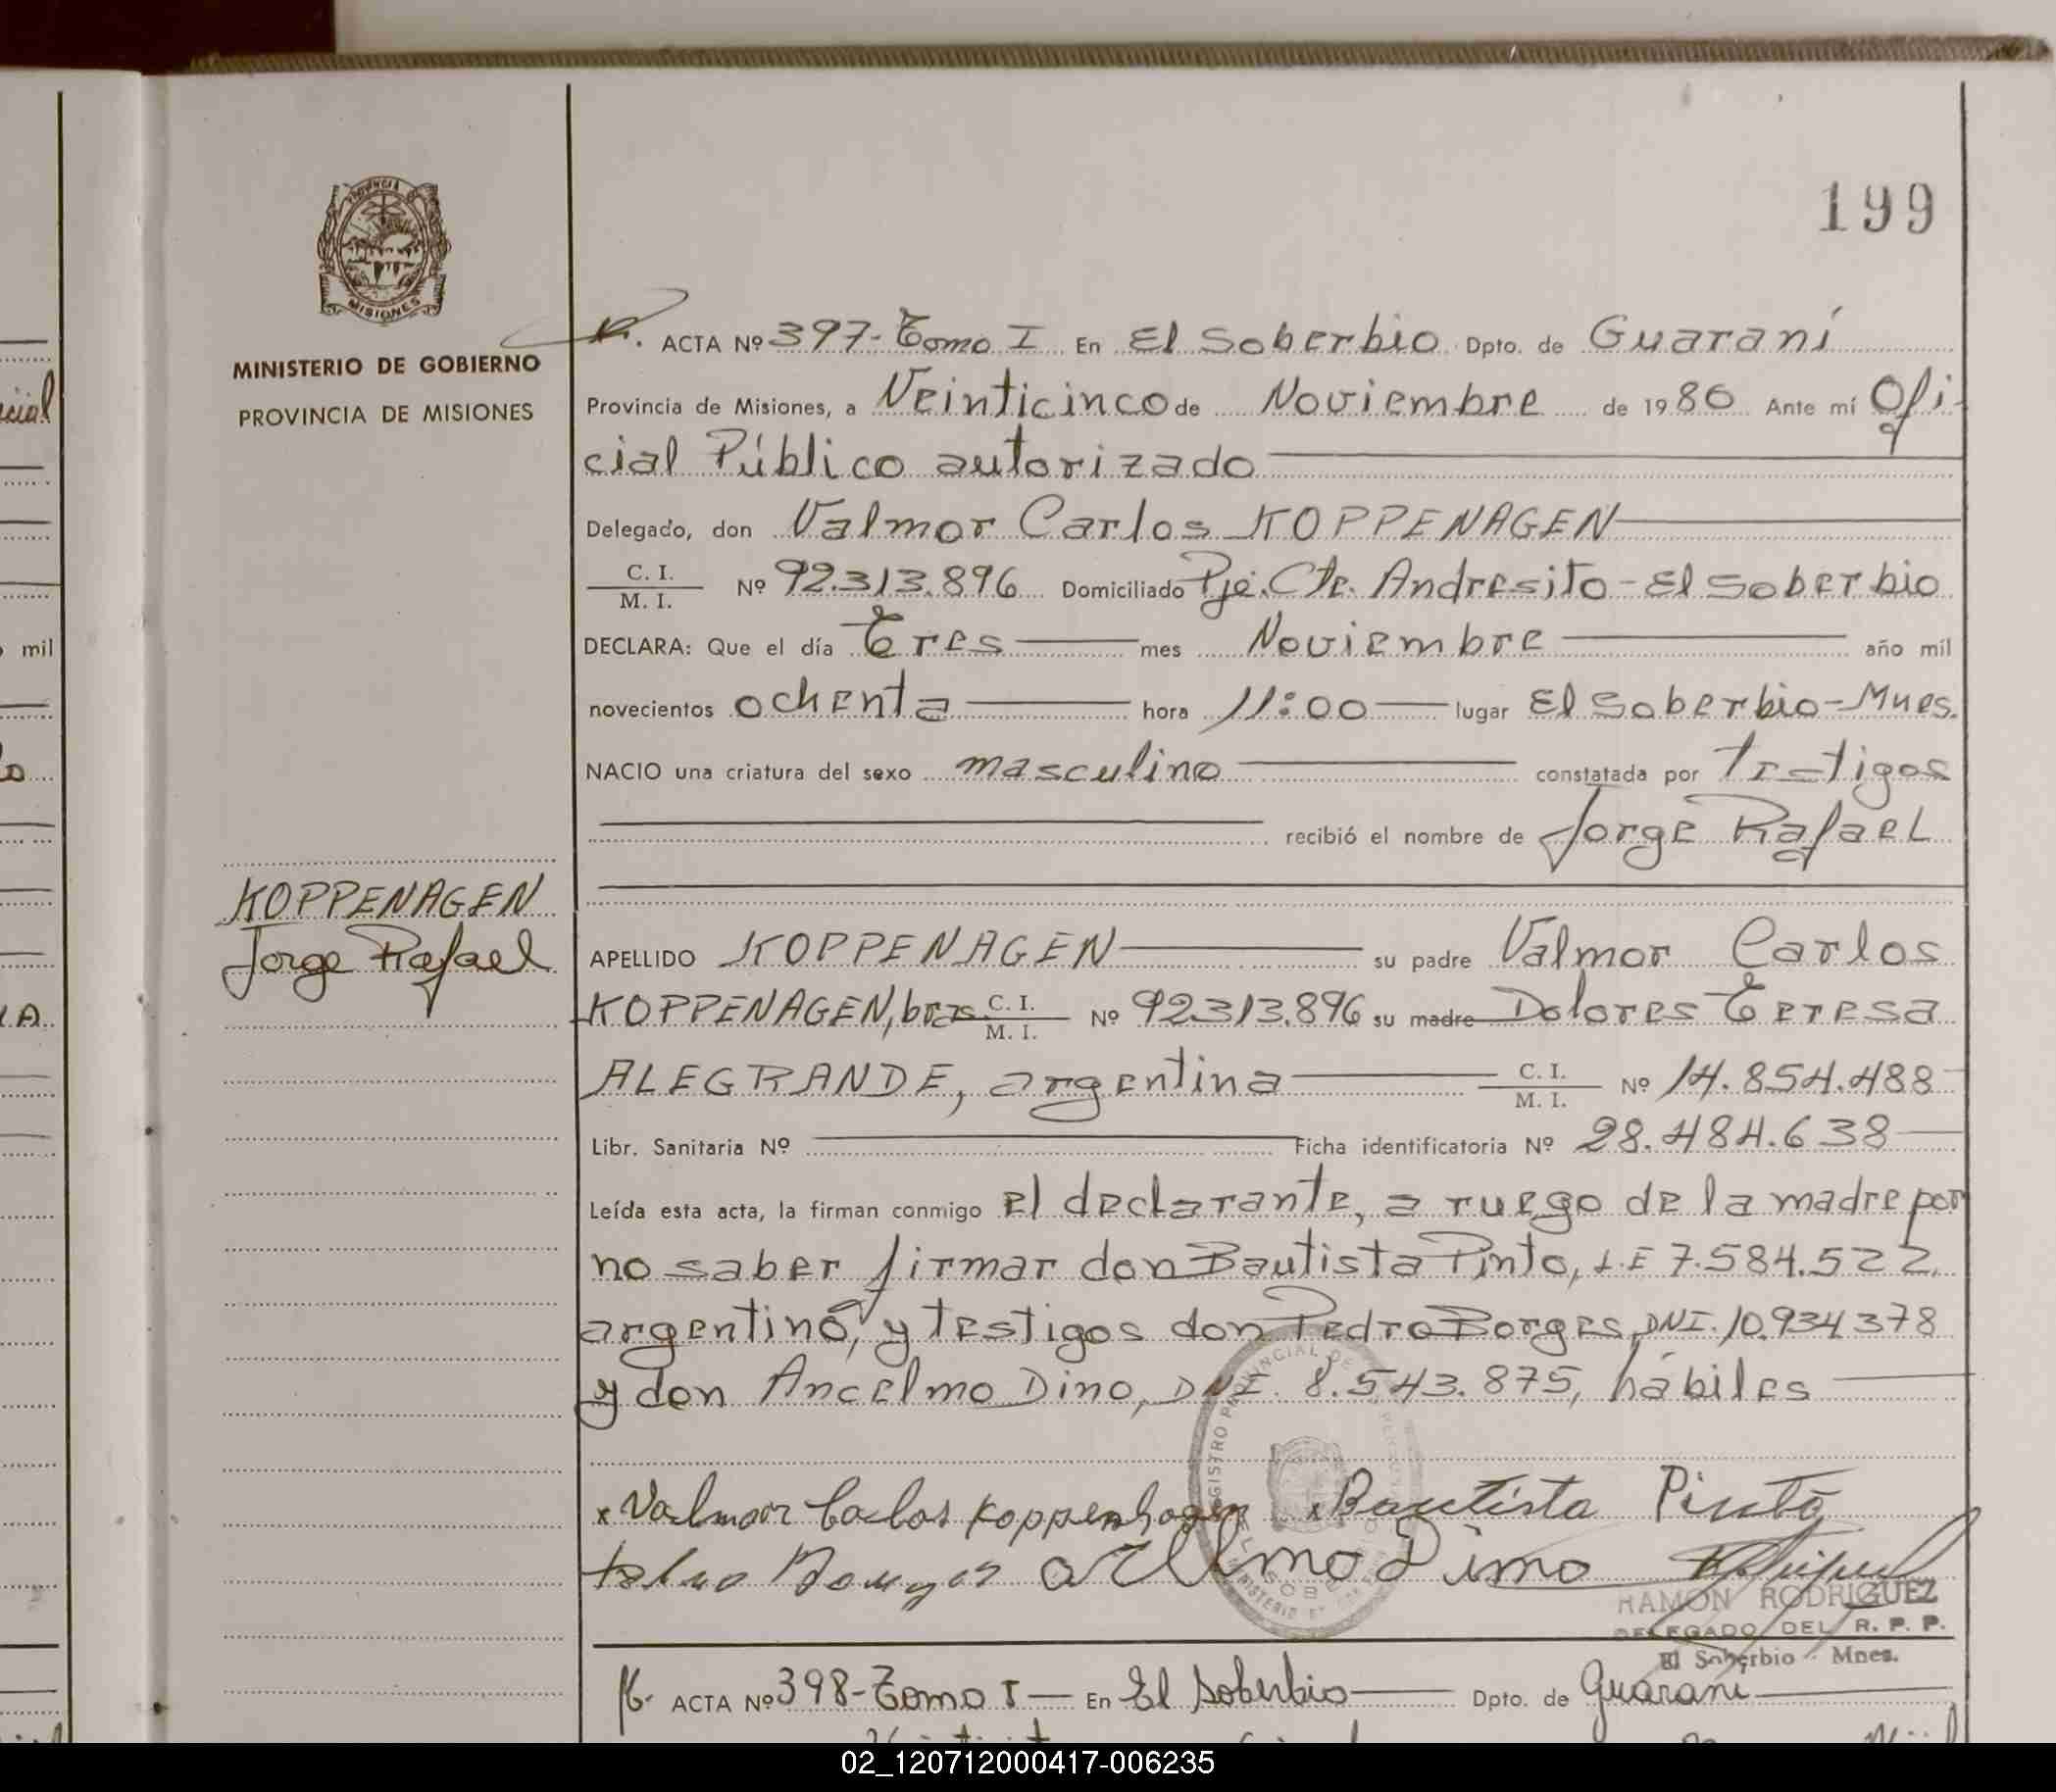 199
PROVINCIA DE
MISIONES
MINISTERIO DE GOBIERNO
PROVINCIA DE MISIONES
ACTA Nº 397-Tomo I En El Soberbio Dpto. de Guaraní
Provincia de Misiones, a Veinticinco de Noviembre de 1980 Ante mí Ofi-
cial Público autorizado
Delegado, don Valmor Carlos KOPPENAGEN
C. I.
M. I. Nº 92.313.896 Domiciliado Pje. Cte. Andresito-El Soberbio
DECLARA: Que el día Tres mes Noviembre año mil
novecientos ochenta hora 11:00 lugar El Soberbio-Mnes.
NACIO una criatura del sexo masculino constatada por Testigos
recibió el nombre de Jorge Rafael
KOPPENAGEN
Jorge Rafael
APELLIDO KOPPENAGEN su padre Valmor Carlos
KOPPENAGEN, bras C. I.
M. I. Nº 92313.896 su madre Dolores Teresa
ALEGRANDE, argentina C. I.
M. I. Nº 14.854.488
Libr. Sanitaria Nº Ficha identificatoria Nº 28.484.638
Leída esta acta, la firman conmigo el declarante, a ruego de la madre por
no saber firmar don Bautista Pinto, L.E 7.584.522,
argentino, y testigos don Pedro Borges, DNI. 10.934378
y don Ancelmo Dino, DNI. 8.543.875, hábiles
x Valmor Carlos Koppenhagen x Bautista Pinto
Dimo
RAMON RODRIGUEZ
DELEGADO DEL R. P. P.
El Soberbio - Mnes.
ACTA Nº 398-Tomo I En El Soberbio Dpto. de Guaraní
mil
02_120712000417-006235